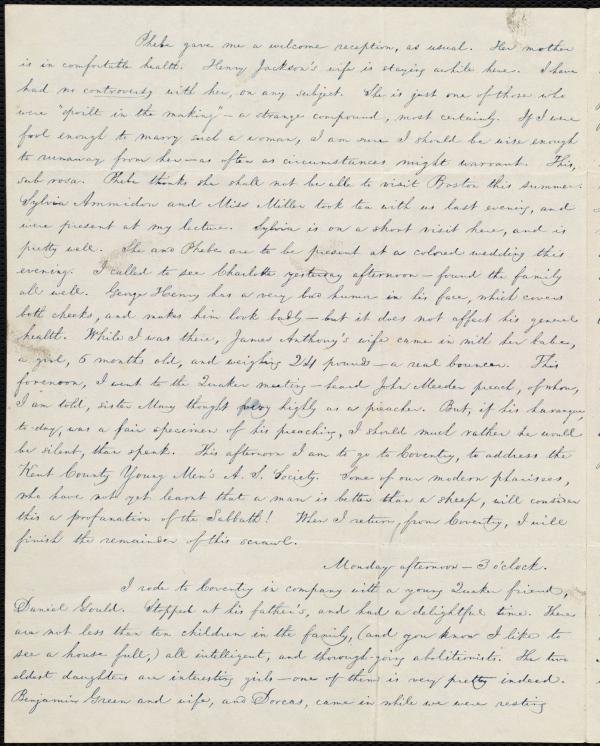 Phebe gave me a welcome reception, as usual. Her mother
is in comfortable health. Henry Jackson's wife is staying awhile here. I have
had no controversy with her, on any subject. She is just one of those who
were "spoilt in the making" — a strange compound, most certainly. If I were
fool enough to marry such a woman, I am sure I should be wise enough
to runaway from her — as often as circumstances might warrant. This,
sub rosa. Phebe thinks she shall not be able to visit Boston this summer.
Sylvia Ammidon and Miss Miller took tea with us last evening, and
were present at my lecture. Sylvia is on a short visit here, and is
pretty well. She and Phebe are to be present at a colored wedding this
evening. I called to see Charlotte yesterday afternoon — found the family
all well. George Henry has a very bad humor in his face, which covers
both cheeks, and makes him look badly — but it does not affect his general
health. While I was there, James Anthony's wife came in with her babe,
a girl, 6 months old, and weighing 24 pounds — a real bouncer. This
forenoon, I went to the Quaker meeting — heard John Meader preach, of whom,
I am told, sister Mary thought very highly as a preacher. But, if his harangue
to-day, was a fair specimen of his preaching, I should much rather he would
be silent, than speak. This afternoon I am to go to Coventry, to address the
Kent County Young Men's A. S. Society. Some of our modern pharisees,
who have not yet learnt that a man is better than a sheep, will consider
this a profanation of the Sabbath! When I return, from Coventry, I will
finish the remainder of this scrawl.
Monday afternoon — 3 o'clock.
I rode to Coventry in company with a young Quaker friend,
Daniel Gould. Stopped at his father's, and had a delightful time. There
are not less than ten children in the family, (and you know I like to
see a house full,) all intelligent, and thorough-going abolitionists. The two
eldest daughters are interesting girls — one of them is very pretty indeed.
Benjamin Green and wife, and Dorcas, came in while we were resting